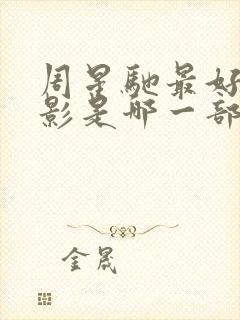 周星驰最好
影是哪一部
金晟